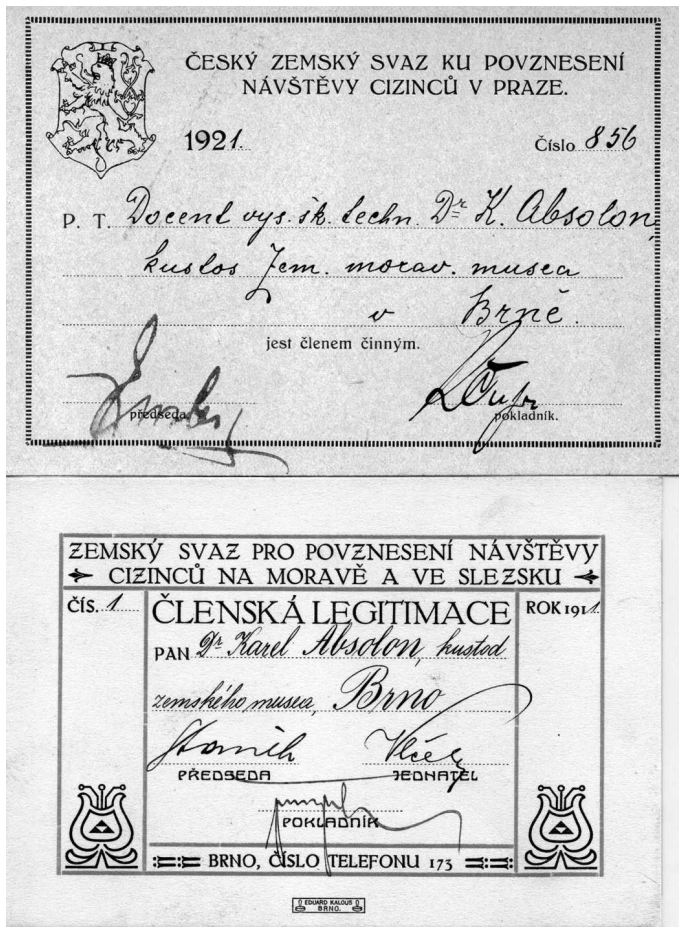 ČESKÝ ZEMSKÝ SVAZ KU POVZNESENÍ
NÁVŠTĚVY CIZINCŮ V PRAZE.
1921. Číslo 856
P. T. Docent vys. šk. techn. Dr. K. Absolon,
kustos Zem. morav. musea
v Brně.
jest členem činným.
předseda.
pokladník.
ZEMSKÝ SVAZ PRO POVZNESENÍ NÁVŠTĚVY
CIZINCŮ NA MORAVĚ A VE SLEZSKU
ČÍS. 1 ČLENSKÁ LEGITIMACE ROK 1911
PAN Dr Karel Absolon, kustod
zemského musea, Brno
PŘEDSEDA JEDNATEL
POKLADNÍK
BRNO, ČÍSLO TELEFONU 173
EDUARD KALOUS
BRNO.